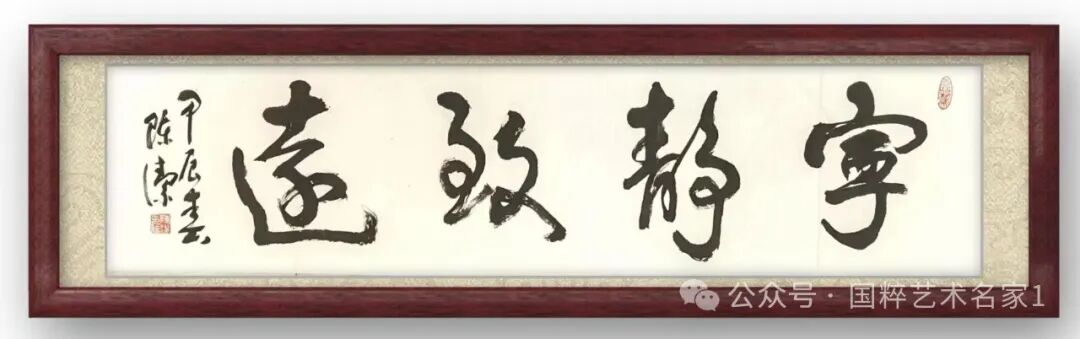 寧静致遠
甲辰春
陈潔
公众号 · 国粹艺术名家1